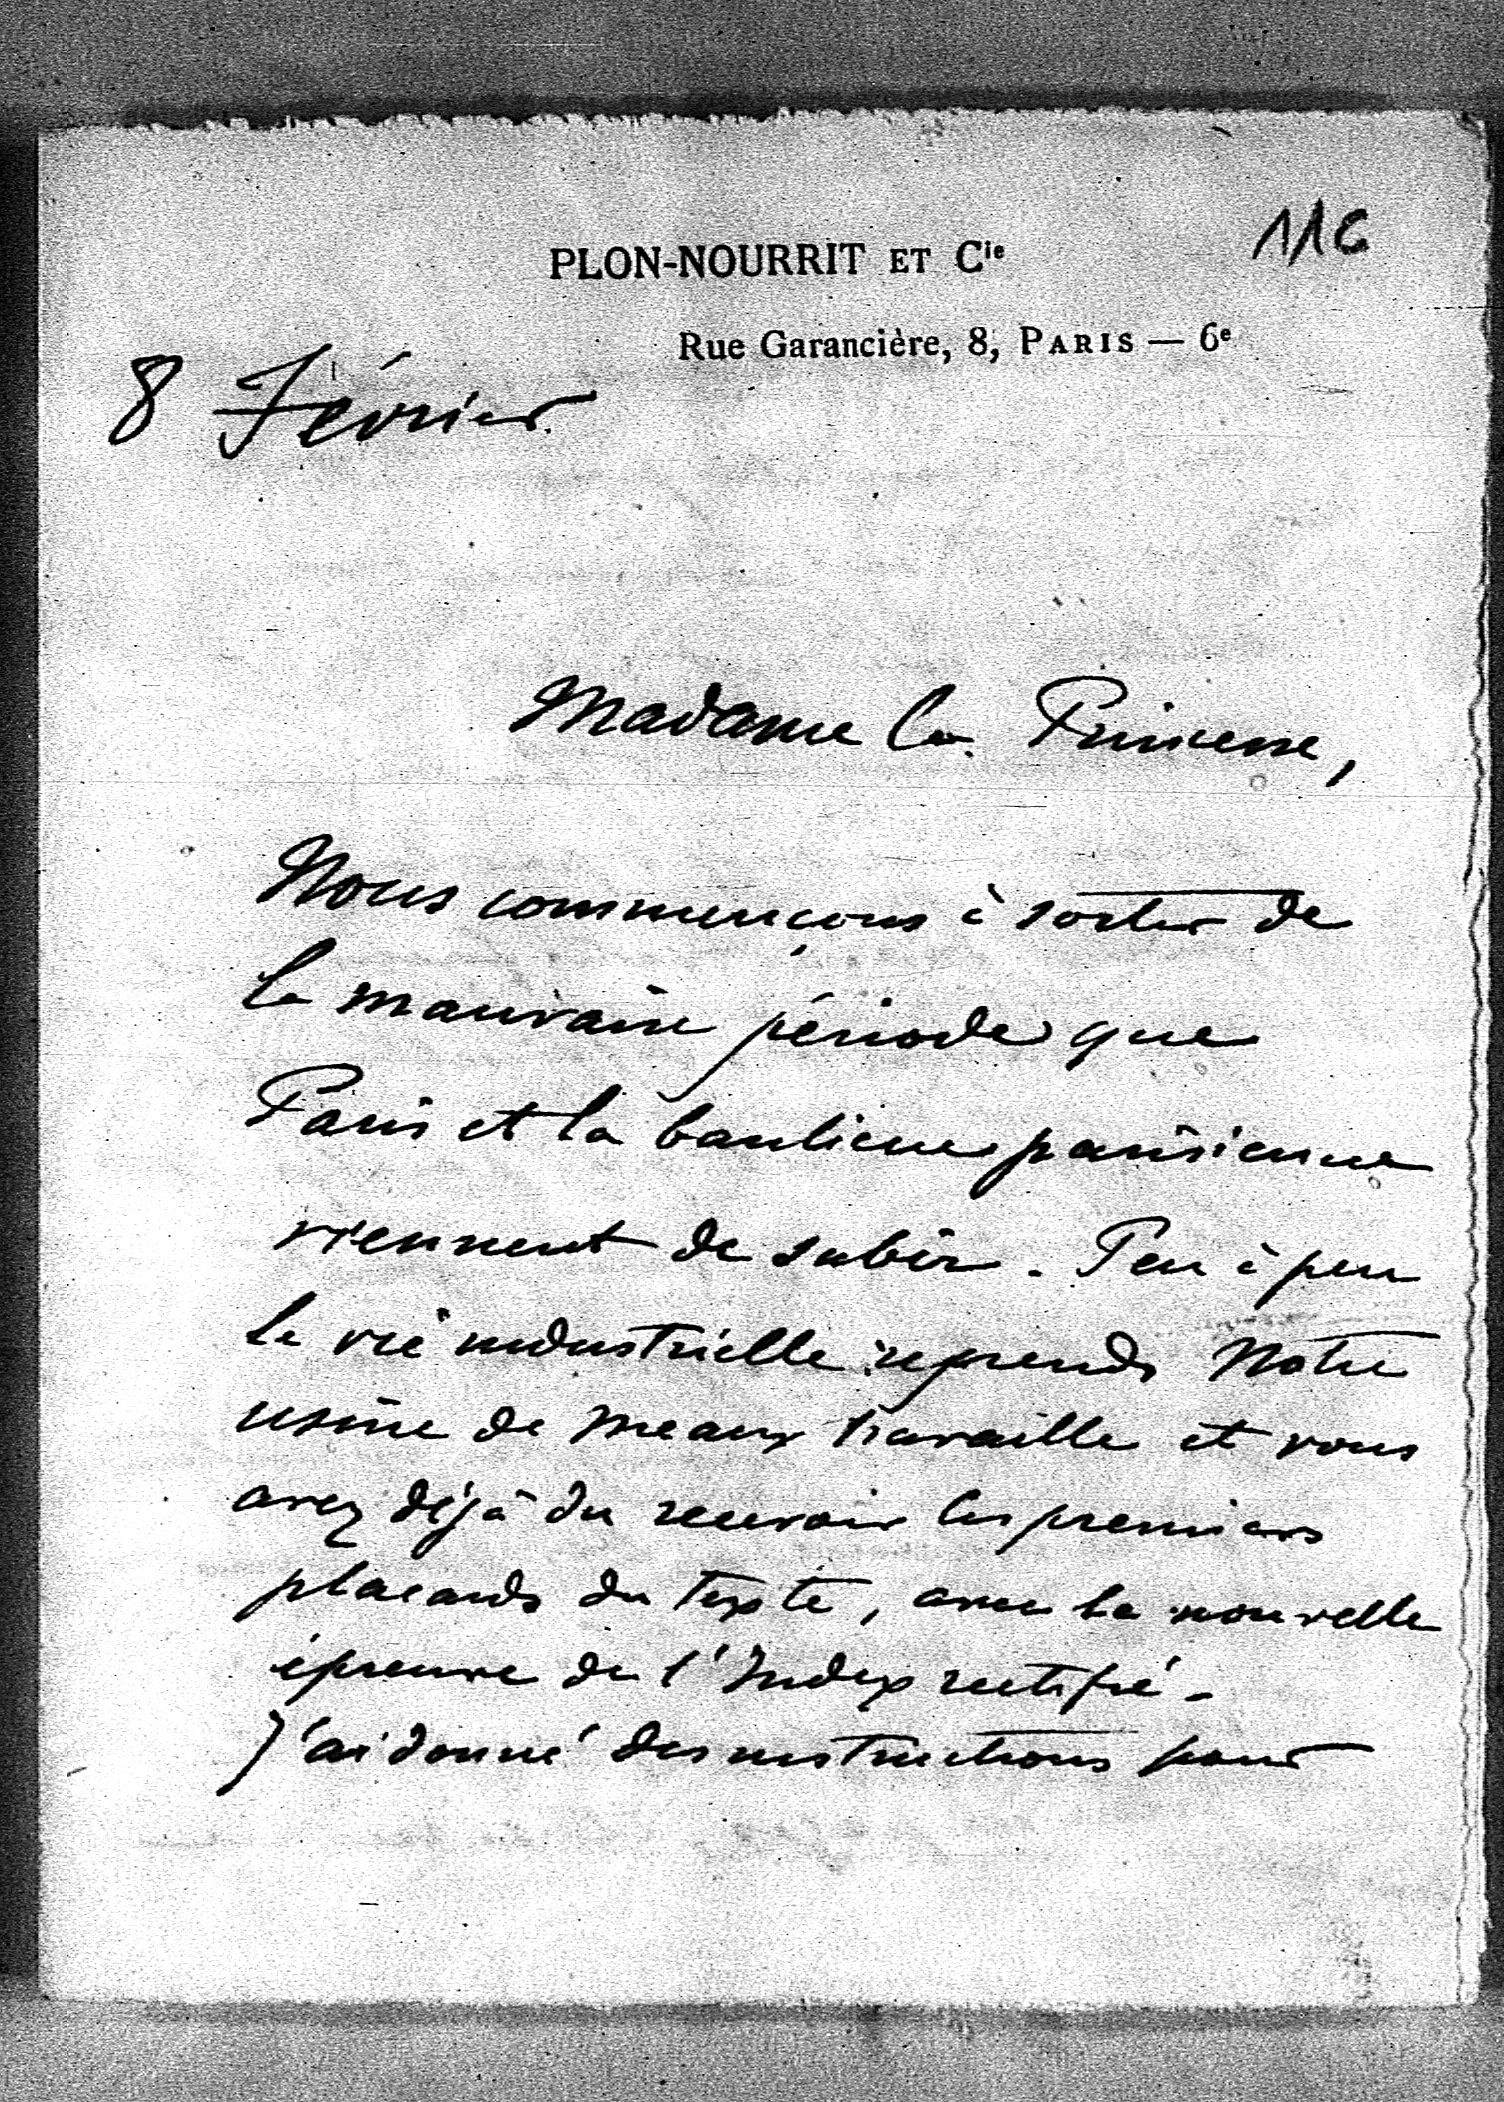 116
PLON-NOURRIT ET Cie
Rue Garancière, 8, PARIS — 6e
8 Février
Madame la Princesse,
Nous commençons à sortir de
la mauvaise période que
Paris et la banlieue parisienne
viennent de subir. Peu à peu
la vie industrielle reprend. Notre
usine de Meaux travaille et vous
avez déjà du recevoir les premiers
placards du texte, avec la nouvelle
épreuve de l'Index rectifié.
J'ai donné des instructions pour